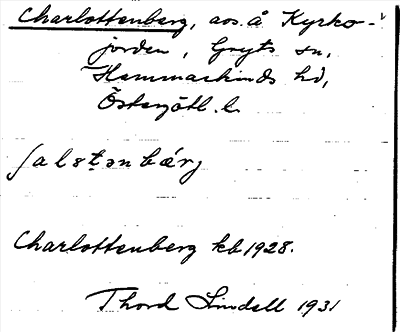 Charlottenberg, avs. å Kyrko-
jorden, Gryts sn,
Hammarkinds hd,
Östergötl. l.
ʃalstənbærj
Charlottenberg kb 1928.
Thord Lindell 1931